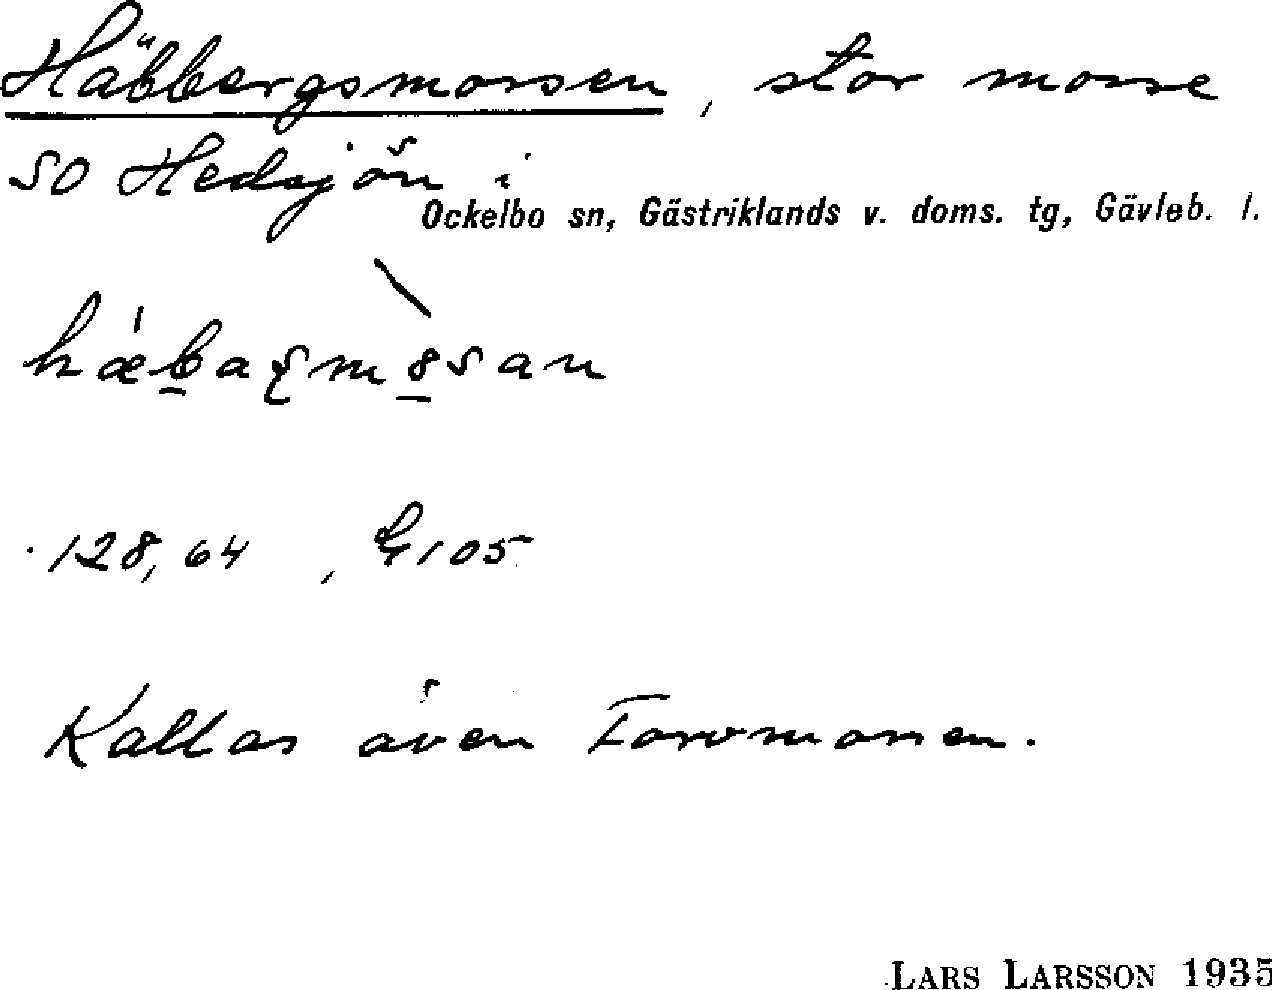 Häbbergsmossen, stor mosse
SO Hedsjön i
Ockelbo sn, Gästriklands v. doms. tg, Gävleb. l.
128, 64, G 105
Kallas även Torvmossen.
LARS LARSSON 1935